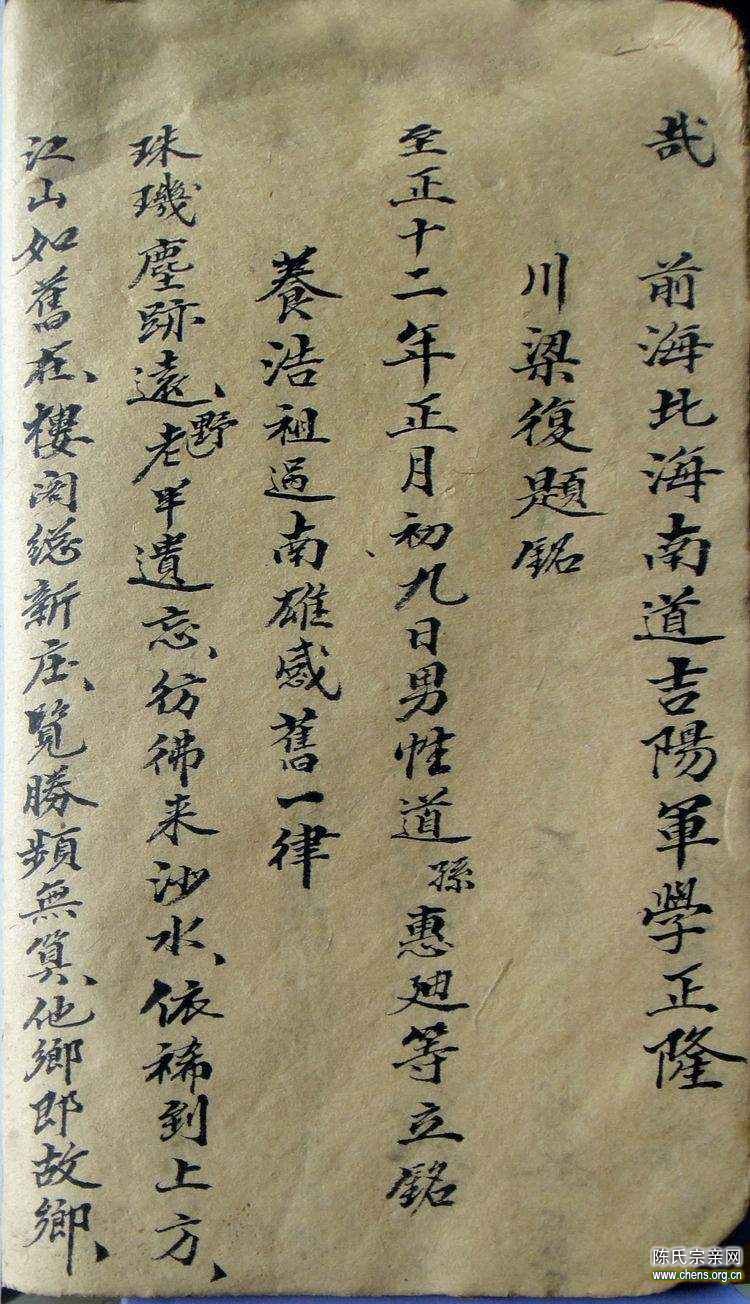 哉　前海北海南道吉陽軍學正隆
川梁復題銘
至正十二年正月初九日男性道孫惠廸等立銘
養浩祖過南雄感舊一律
珠璣塵跡遠、老野半遺忘、彷彿来沙水、依稀到上方、
江山如舊在、樓阁総新庄、覽勝頻無算、他鄉即故鄉、
陈氏宗亲网
www.chens.org.cn